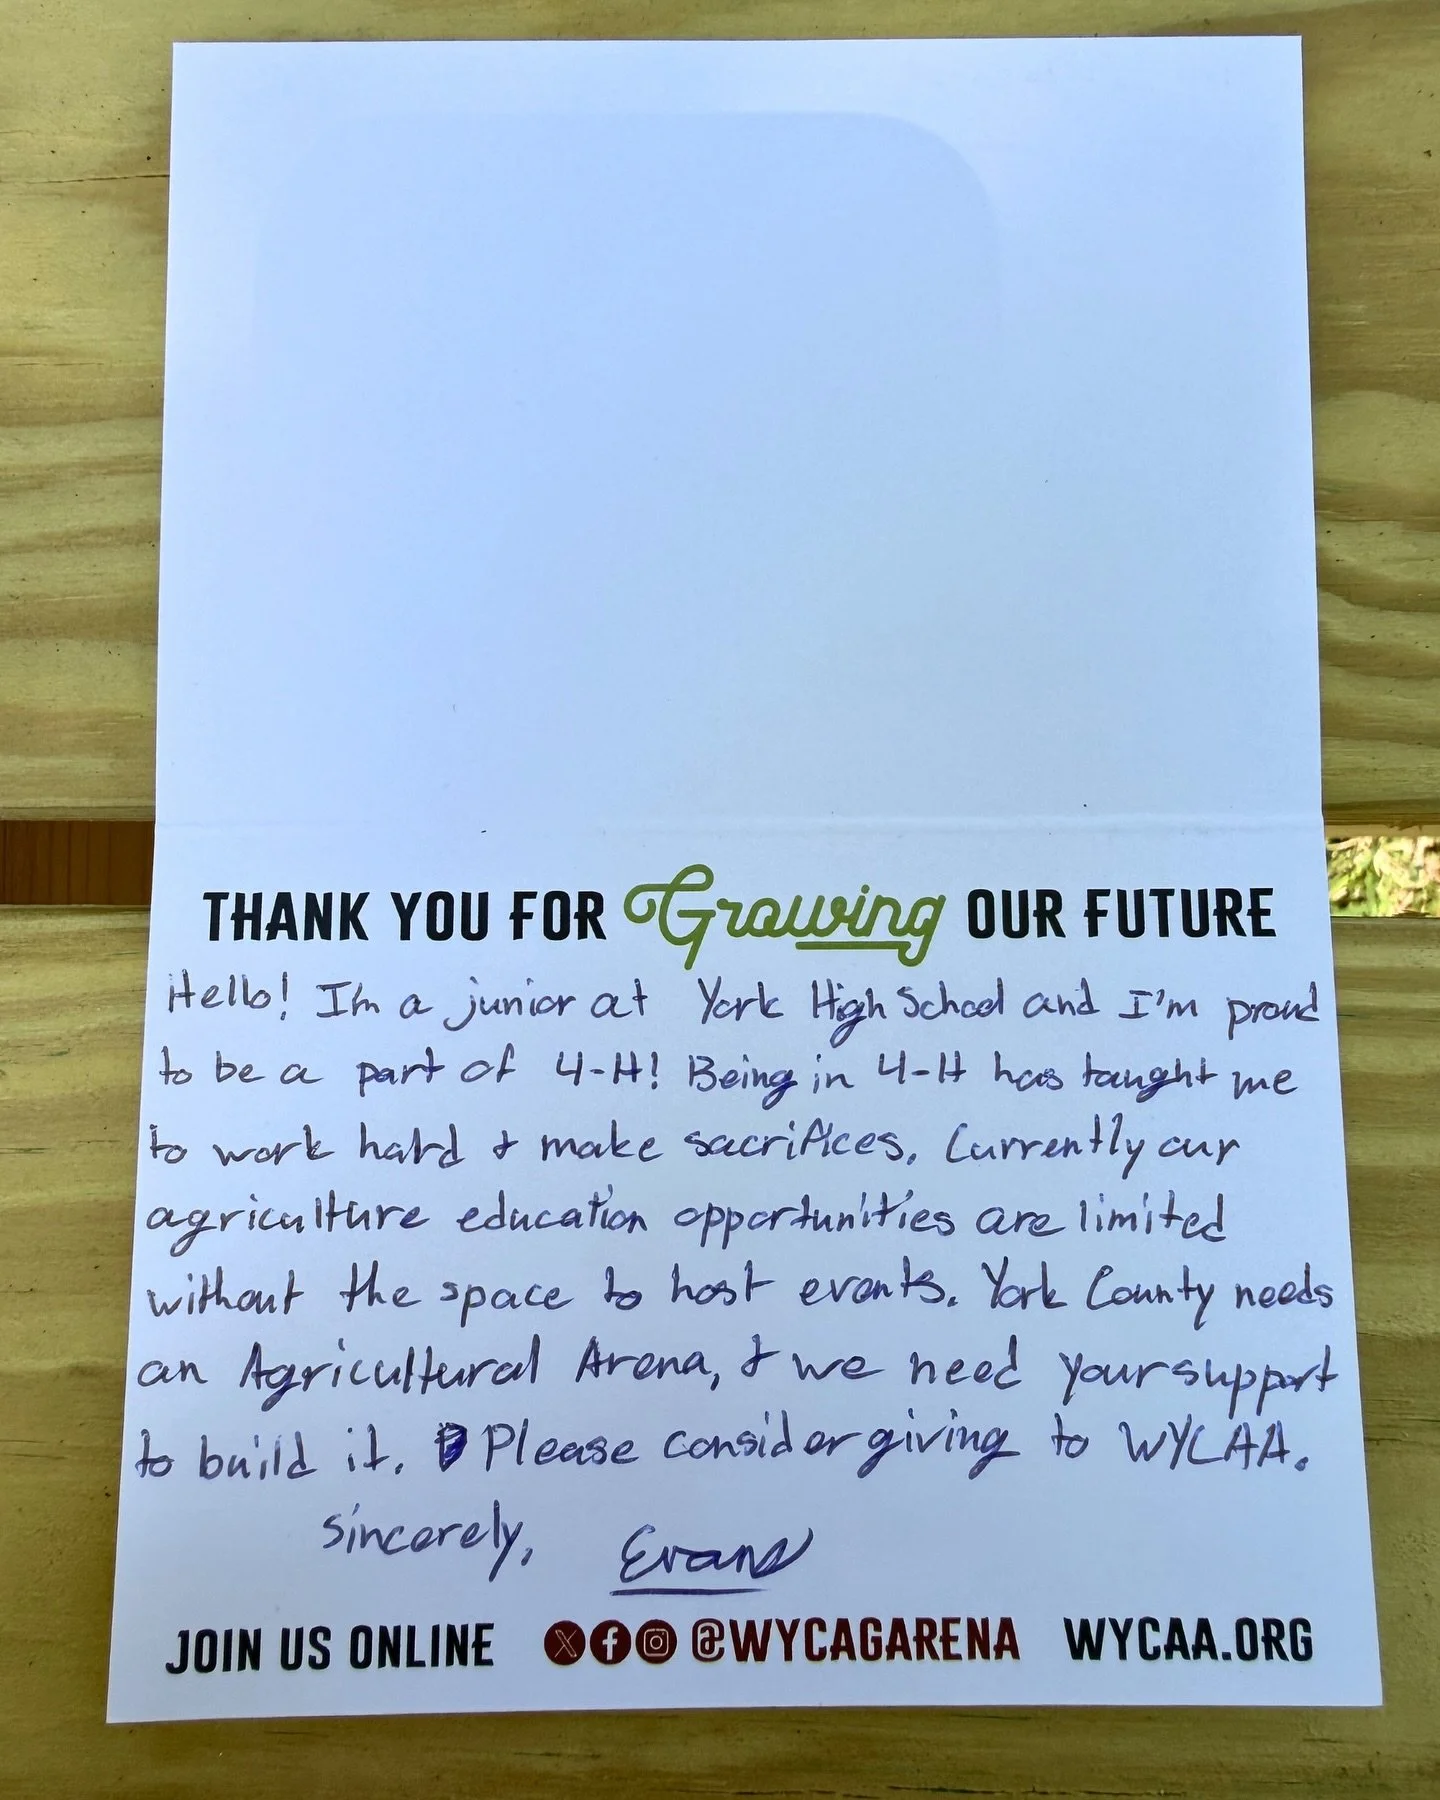 THANK YOU FOR Growing OUR FUTURE
Hello! I'm a junior at York High School and I'm proud
to be a part of 4-H! Being in 4-H has taught me
to work hard & make sacrifices. Currently our
agriculture education opportunities are limited
without the space to host events. York County needs
an Agricultural Arena, & we need your support
to build it. Please consider giving to WYCAA.
Sincerely, Evans
JOIN US ONLINE @WYCAGARENA WYCAA.ORG